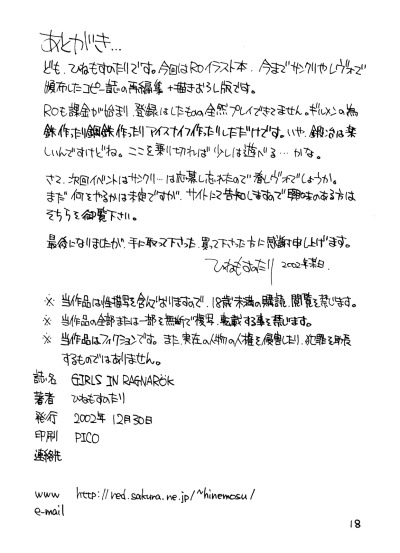 あとがき…
ども、ひねもすのたりです。今回はROイラスト本、今までサンクリやレヴォで
頒布したコピー誌の再編集+描きおろし版です。
ROも課金が始まり、登録はしたものの全然プレイできてません。ギルメンの為
鉄作ったり鋼鉄作ったりアイスナイフ作ったりしただけです。いや、鍛冶は楽
しいんですけどね。ここを乗り切れば少しは遊べる…かな。
さて、次回イベントはサンクリ…は応募し忘れたので春レヴォでしょうか。
まだ何をやるかは未定ですが、サイトにて告知しますので興味のある方は
そちらを御覧下さい。
最後になりましたが、手に取って下さった、買って下さった方に感謝を申し上げます。
ひねもすのたり 2002年某日.
※ 当作品は性描写を含んでおりますので、18歳未満の購読、閲覧を禁じます。
※ 当作品の全部または一部を無断で複写、転載する事を禁じます。
※ 当作品はフィクションです。また、実在の人物の人権を侵害したり、犯罪を助長
するものではありません。
誌名 GIRLS IN RAGNARÖK
著者 ひねもすのたり
発行 2002年 12月30日
印刷 PICO
連絡先
www http://red.sakura.ne.jp/~hinemosu/
e-mail
18